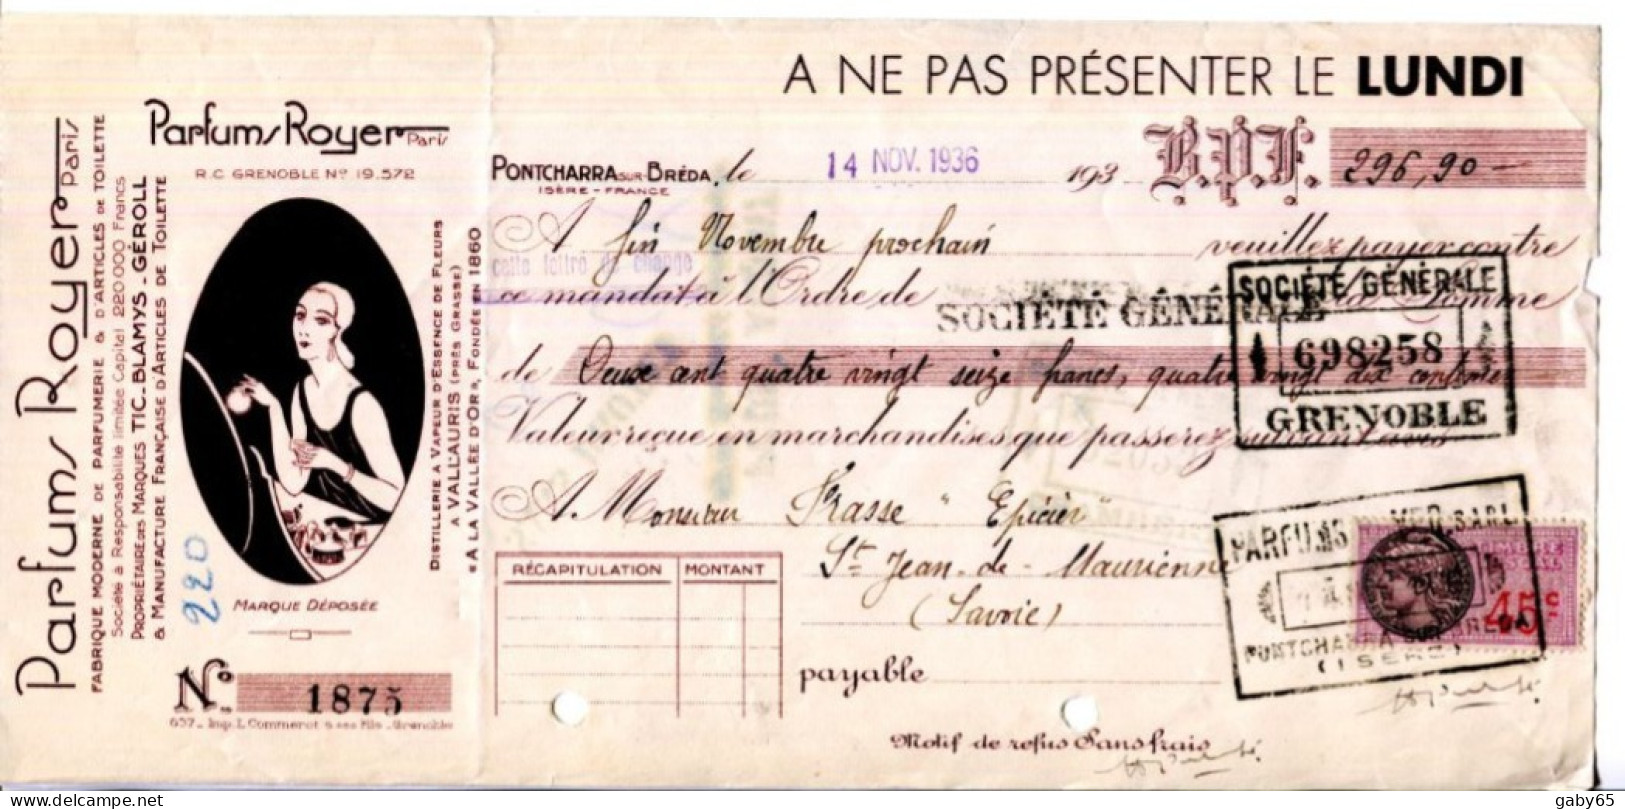 A NE PAS PRÉSENTER LE LUNDI
Parfums Royer Paris
FABRIQUE MODERNE DE PARFUMERIE & D'ARTICLES DE TOILETTE
Société à Responsabilité limitée Capital 220.000 Francs
PROPRIÉTAIRE DES MARQUES TIC_BLAMYS_GÉROLL
& MANUFACTURE FRANÇAISE D'ARTICLES DE TOILETTE
Parfums Royer Paris
R.C. GRENOBLE Nº 19.572
220
MARQUE DÉPOSÉE
Nº 1875
637_ Imp. L. Commerot & ses Fils _ Grenoble
DISTILLERIE A VAPEUR D'ESSENCE DE FLEURS
A VALLAURIS (PRÈS GRASSE)
« A LA VALLÉE D'OR », FONDÉE EN 1860
PONTCHARRA SUR BRÉDA, le 14 NOV. 1936 193 B.P.F. 296,90 -
ISÈRE - FRANCE
A fin Novembre prochain veuillez payer contre
cette lettre de change
ce mandat à l'Ordre de SOCIÉTÉ GÉNÉRALE la Somme
de Deux cent quatre vingt seize francs, quatre vingt dix centimes
Valeur reçue en marchandises que passerez suivant avis
SOCIÉTÉ GÉNÉRALE
698258
GRENOBLE
A Monsieur Frasse "Epicier"
St Jean-de-Maurienne
(Savoie)
RÉCAPITULATION MONTANT
payable
PARFUMS SARL
PONTCHARRA SUR BREDA
(ISÈRE)
45c
Motif de refus Sans frais
gaby65